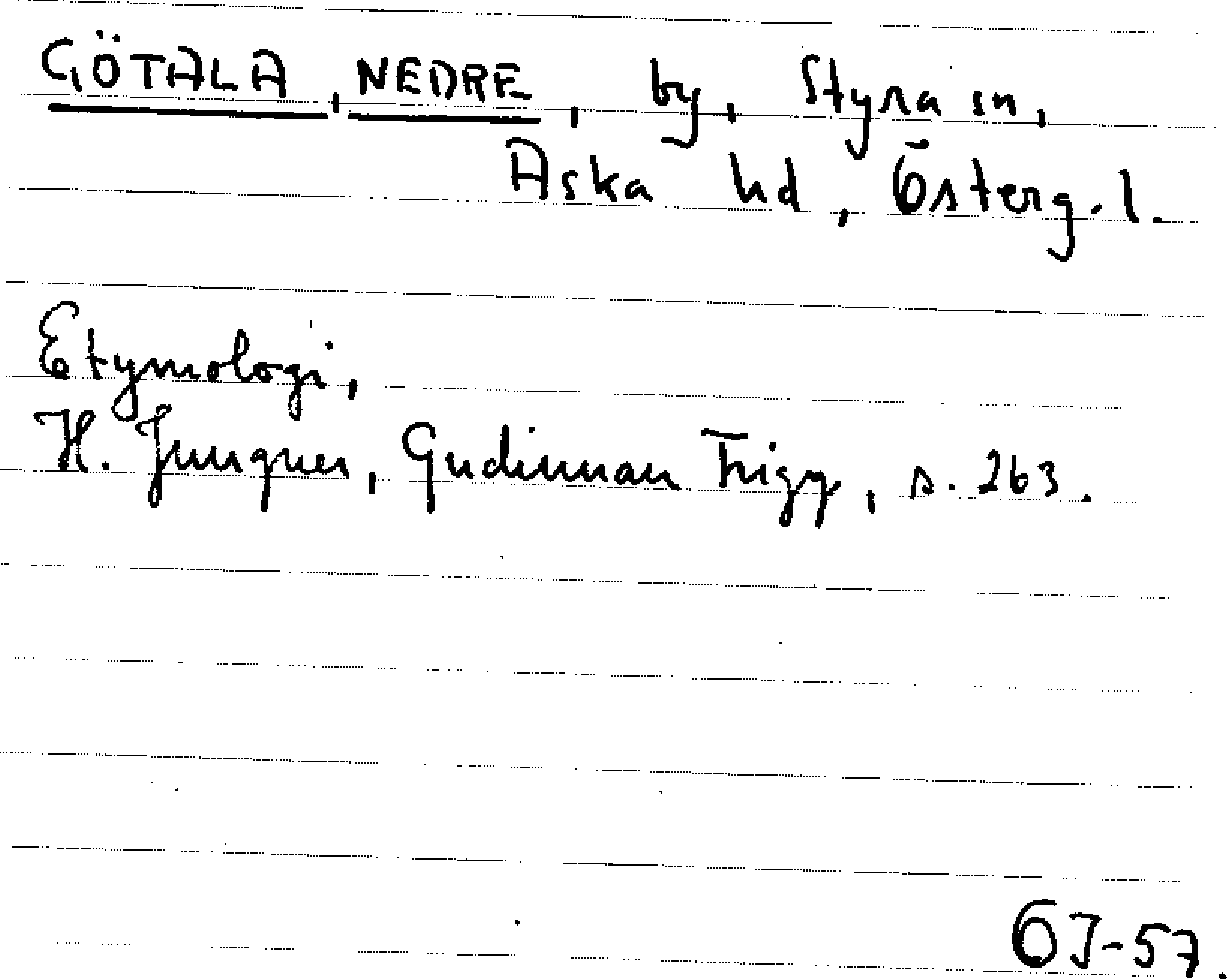 GÖTALA, NEDRE, by, Styra sn,
Aska hd, Österg. l.
Etymologi,
H. Jungner, Gudinnan Frigg, s. 263.